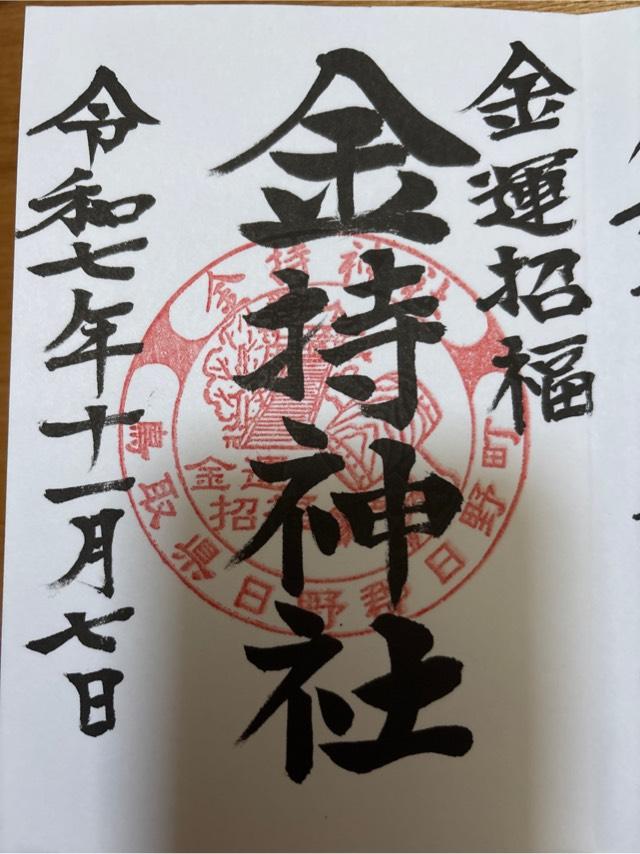 金運招福
金持神社
令和七年十一月七日
金持神社
金運
招福
鳥取県日野郡日野町